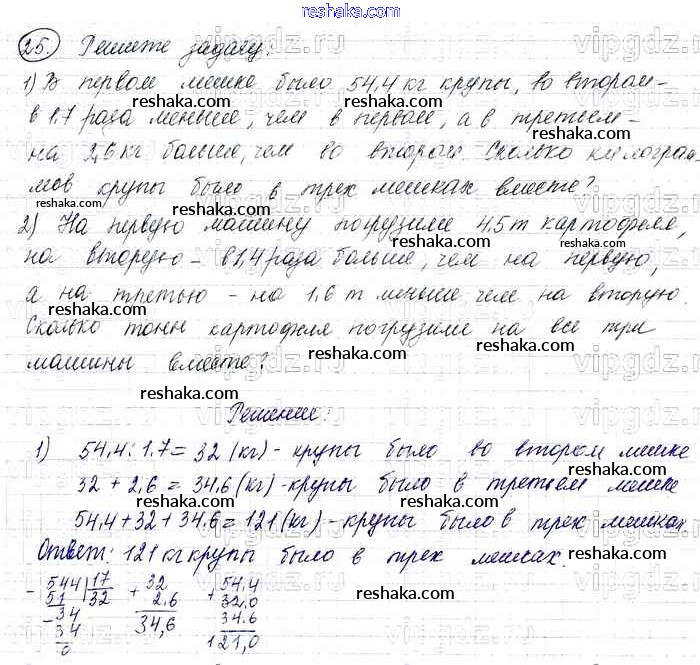 reshaka.com
25. Решите задачу:
1) В первом мешке было 54,4 кг крупы, во втором –
reshaka.com reshaka.com
в 1,7 раза меньше, чем в первом, а в третьем –
на 2,6 кг больше, чем во втором. Сколько килограм-
мов крупы было в трех мешках вместе?
reshaka.com reshaka.com
2) На первую машину погрузили 4,5 т картофеля,
reshaka.com
на вторую – в 1,4 раза больше, чем на первую,
reshaka.com
а на третью – на 1,6 т мньше чем на вторую.
Сколько тонн картофеля погрузили на все три
reshaka.com
машины вместе?
reshaka.com
reshaka.com
Решение:
1) 54,4 : 1,7 = 32 (кг) - крупы было во втором мешке
reshaka.com
32 + 2,6 = 34,6 (кг) - крупы было в третьем мешке
reshaka.com
54,4 + 32 + 34,6 = 121 (кг) - крупы было в трех мешках
reshaka.com
Ответ: 121 кг крупы было в трех мешках.
reshaka.com
- 544 | 17 + 32 + 54,4
51 32 2,6 32,0
- 34 34,6 34,6
34 121,0
0
reshaka.com
vipgdz.com